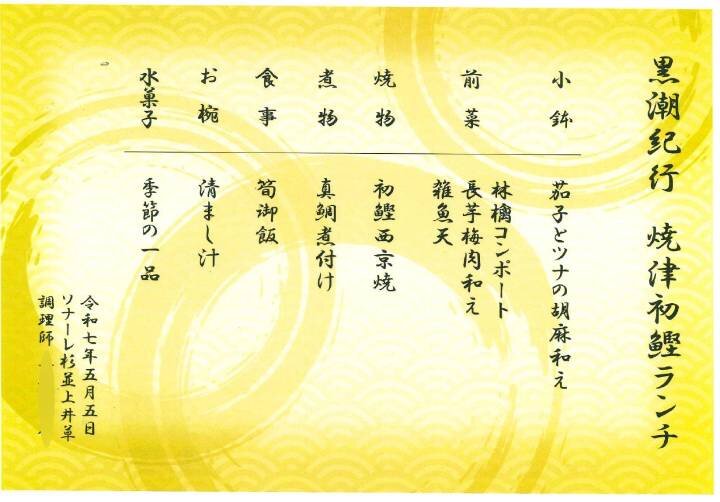 黒潮紀行　焼津初鰹ランチ
小鉢　茄子とツナの胡麻和え
前菜　林檎コンポート
長芋梅肉和え
雑魚天
焼物　初鰹西京焼
煮物　真鯛煮付け
食事　筍御飯
お椀　清まし汁
水菓子　季節の一品
令和七年五月五日
ソナーレ杉並上井草
調理師